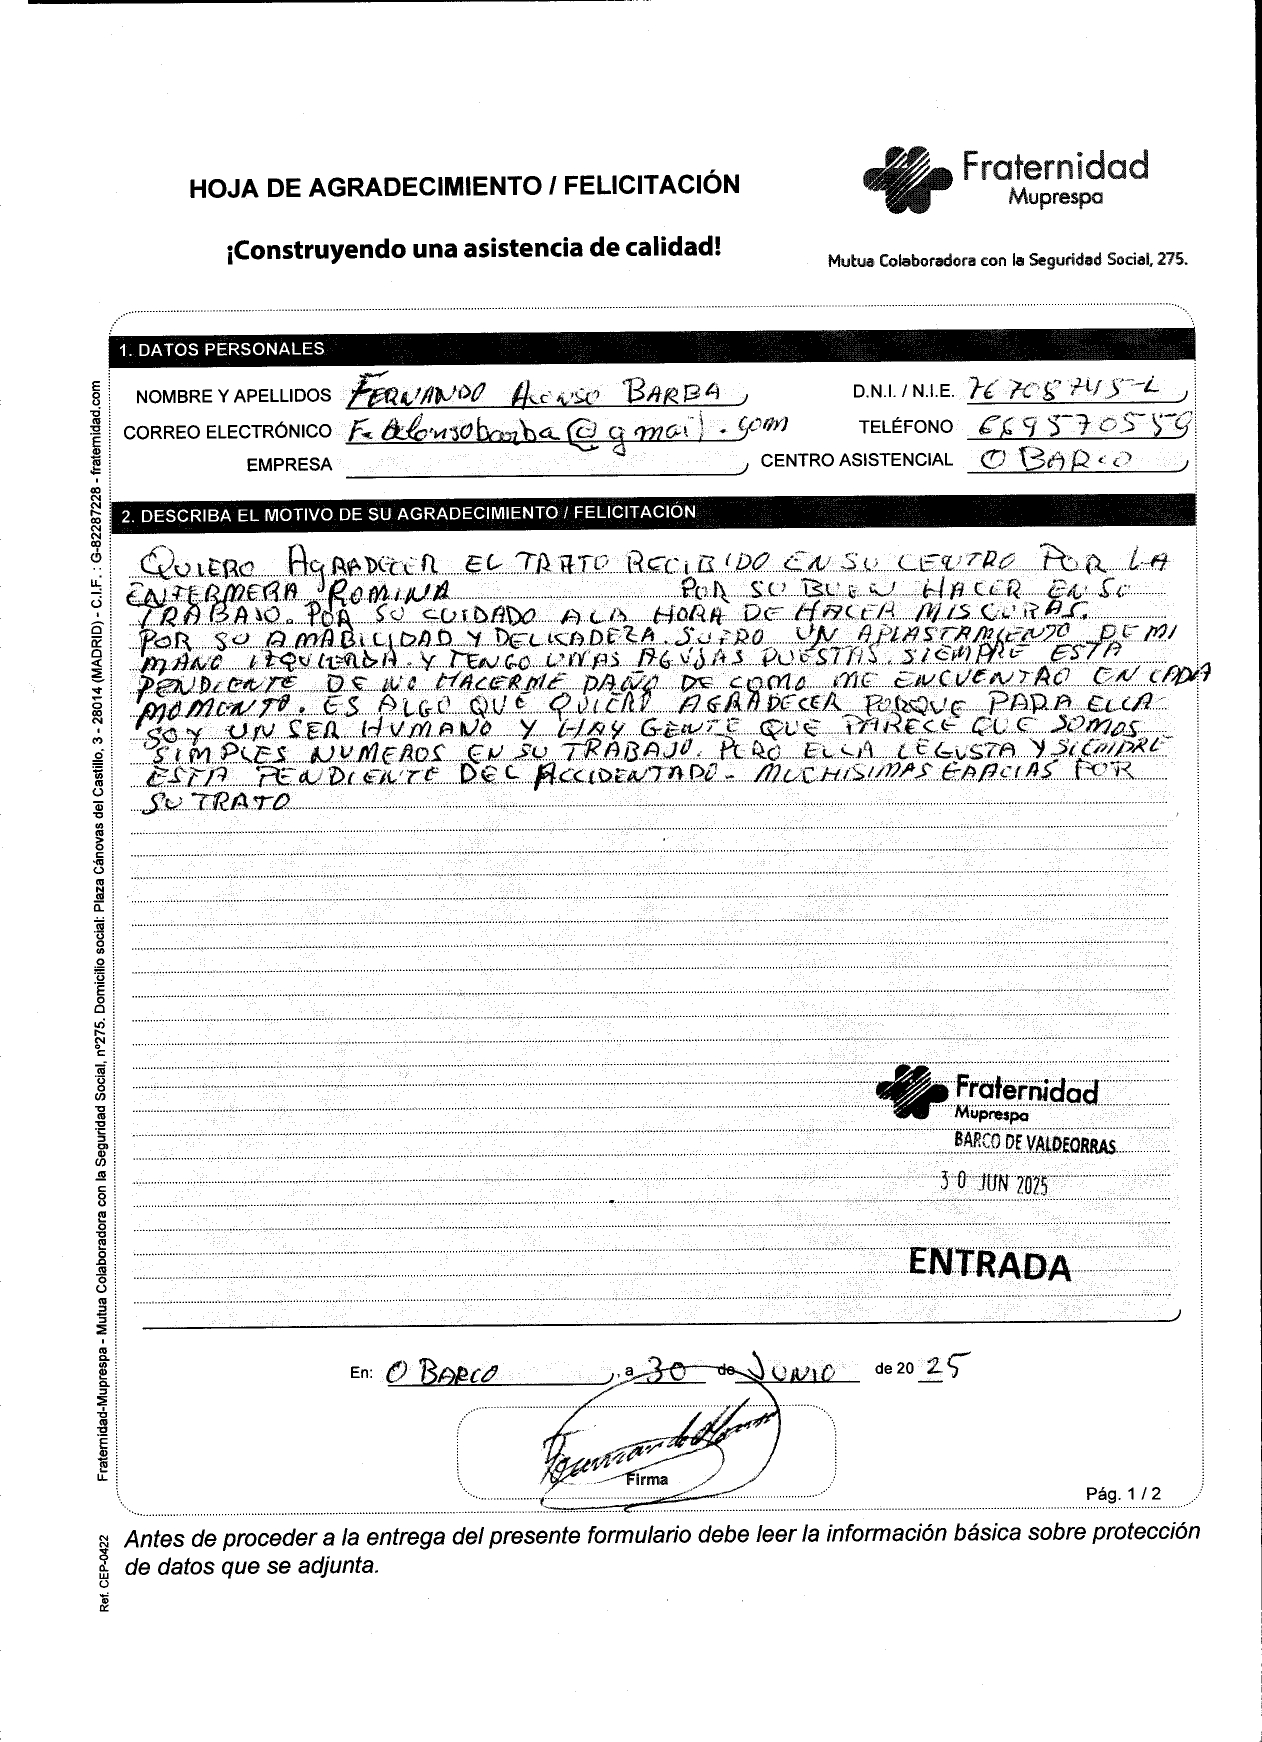 HOJA DE AGRADECIMIENTO / FELICITACIÓN
¡Construyendo una asistencia de calidad!
Fraternidad
Muprespa
Mutua Colaboradora con la Seguridad Social, 275.
1. DATOS PERSONALES
NOMBRE Y APELLIDOS FERNANDO ALONSO BARBA
D.N.I. / N.I.E. 76708745-L
CORREO ELECTRÓNICO F.alonsobarba@gmail.com
TELÉFONO 669570559
EMPRESA
CENTRO ASISTENCIAL O BARCO
2. DESCRIBA EL MOTIVO DE SU AGRADECIMIENTO / FELICITACIÓN
QUIERO AGRADECER EL TRATO RECIBIDO EN SU CENTRO POR LA
ENFERMERA ROMINA POR SU BUEN HACER EN SU
TRABAJO. POR SU CUIDADO A LA HORA DE HACER MIS CURAS.
POR SU AMABILIDAD Y DELICADEZA. SUFRO UN APLASTAMIENTO DE MI
MANO IZQUIERDA. Y TENGO UNAS AGUJAS PUESTAS. SIEMPRE ESTA
PENDIENTE DE NO HACERME DAÑO DE COMO ME ENCUENTRO EN CADA
MOMENTO. ES ALGO QUE QUIERO AGRADECER PORQUE PARA ELLA
SOY UN SER HUMANO Y HAY GENTE QUE PARECE QUE SOMOS
SIMPLES NUMEROS EN SU TRABAJO. PERO ELLA LE GUSTA Y SIEMPRE
ESTA PENDIENTE DEL ACCIDENTADO. MUCHISIMAS GRACIAS POR
SU TRATO
Fraternidad
Muprespa
BARCO DE VALDEORRAS
30 JUN 2025
ENTRADA
En: O BARCO, a 30 de JUNIO de 2025
Fernando Alonso
Firma
Pág. 1 / 2
Antes de proceder a la entrega del presente formulario debe leer la información básica sobre protección
de datos que se adjunta.
Fraternidad-Muprespa - Mutua Colaboradora con la Seguridad Social, nº275. Domicilio social: Plaza Cánovas del Castillo, 3 - 28014 (MADRID) - C.I.F. : G-82287228 - fraternidad.com
Ref. CEP-0422